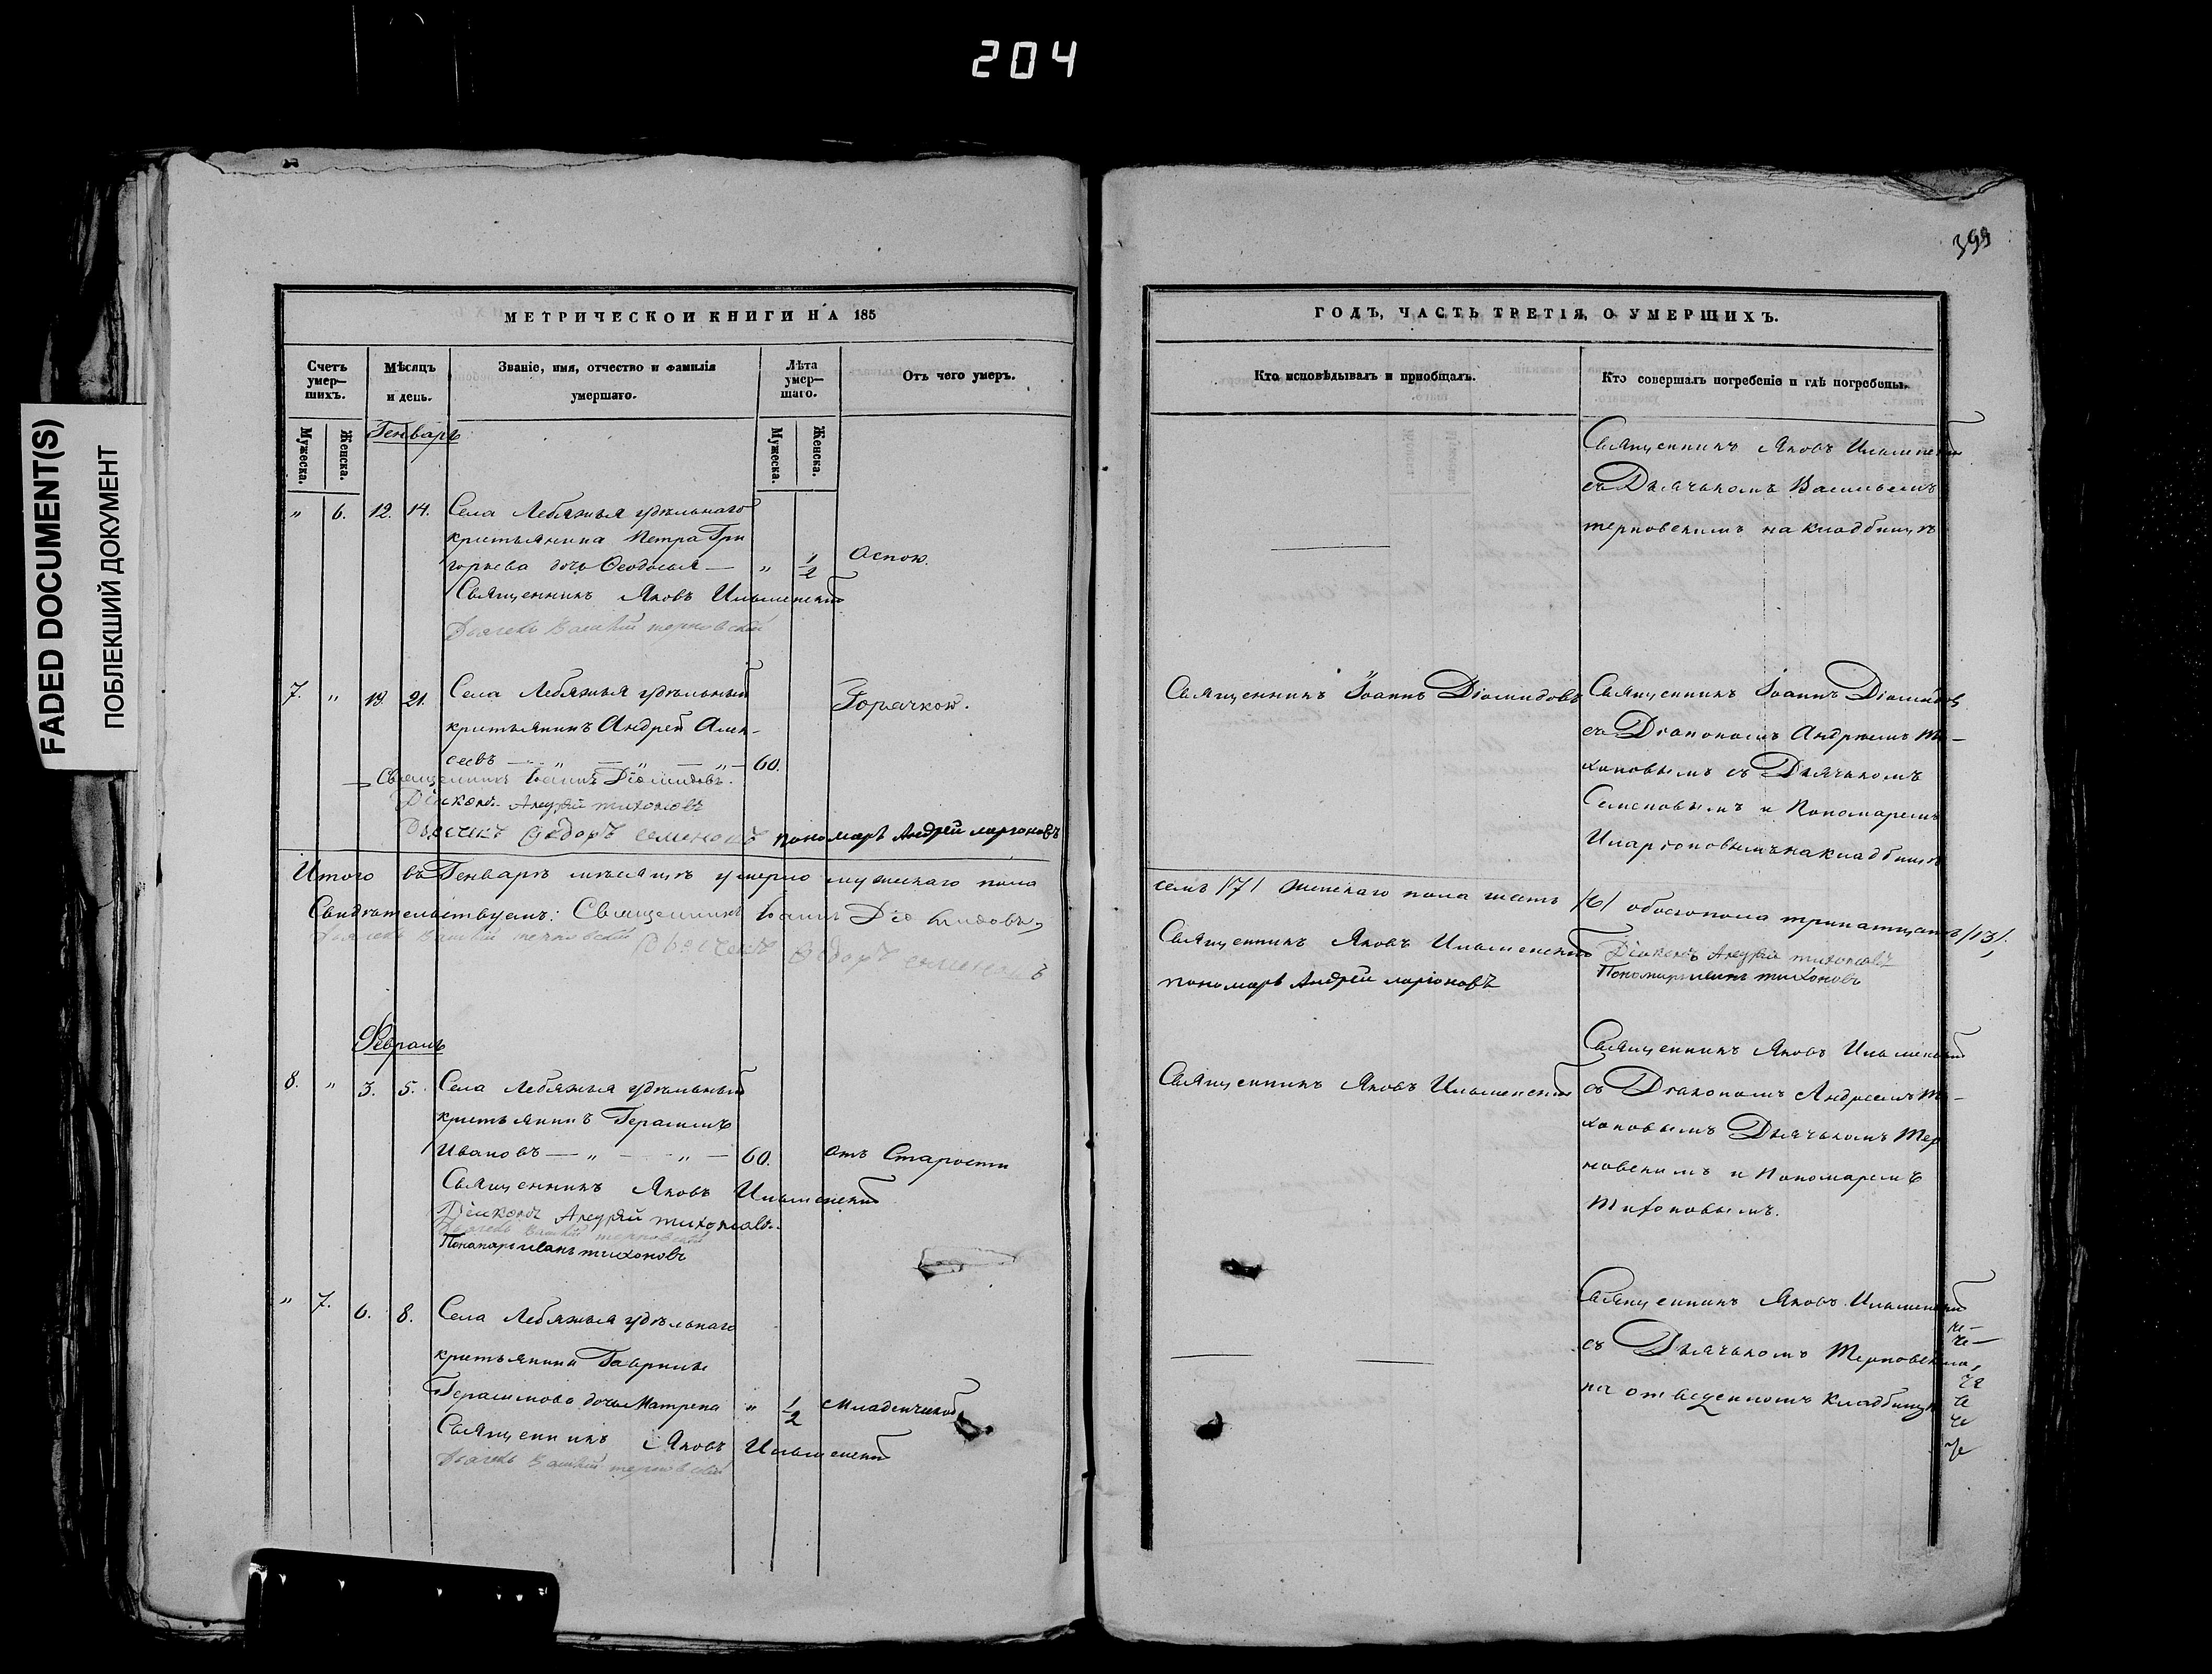 204
FADED DOCUMENT(S)
ПОБЛЕКШИЙ ДОКУМЕНТ
МЕТРИЧЕСКОЙ КНИГИ НА 185
Счетъ умер-шихъ.
Мѣсяцъ и день.
Званіе, имя, отчество и фамилія умершаго.
Лѣта умер-шаго.
Отъ чего умеръ.
Мужеска.
Женска.
Мужеска.
Женска.
Генварь
" 6. 12. 14. Села Лебяжья удѣльнаго
крестьянина Петра Гри
горьева дочь Феодосья — " 1/2 Оспою.
Священникъ Яковъ Ильменскій
Дьячекъ Василій терновскій
7. " 19. 21. Села Лебяжья удѣльный Горячкою.
крестьянинъ Андрей Алек-
сеевъ — " — " — " — 60.
Священникъ Іоаннъ Діомидовъ.
Діаконъ Андрей тихоновъ
Дьячекъ Ѳедоръ семеновъ пономарь Андрей ларіоновъ
Итого въ Генварѣ мѣсяцѣ умерло мужескаго пола
Свидѣтельствуемъ: Священникъ Іоаннъ Діомидовъ,
Дьячекъ Василій терновскій Дьячекъ Ѳедоръ семеновъ
Февраль
8. " 3. 5. Села Лебяжья удѣльный
крестьянинъ Герасимъ
Ивановъ — " — " — 60. отъ Старости
Священникъ Яковъ Ильменскій
Діаконъ Андрей тихоновъ.
Дьячекъ Василій терновскій
Пономарь иванъ тихоновъ
" 7. 6. 8. Села Лебяжья удѣльнаго
крестьянина Гаврилы
Герасимова дочь Матрена " 1/2 Младенческой
Священникъ Яковъ Ильменскій
Дьячекъ Василій терновскій
399
ГОДЪ, ЧАСТЬ ТРЕТІЯ, О УМЕРШИХЪ.
Кто исповѣдывалъ и пріобщалъ.
Кто совершалъ погребеніе и гдѣ погребены.
Священникъ Яковъ Ильменскій
съ Дьячькомъ Васильемъ
терновскимъ на кладбищѣ
Священникъ Іоаннъ Діомидовъ Священникъ Іоаннъ Діомидов
съ Діакономъ Андреемъ Ти-
хоновымъ съ Дьячькомъ
Семеновымъ и Пономаремъ
Иларіоновымъ на кладбищѣ
семь /7/ женскаго пола шесть /6/ обоего пола тринатцать /13/.
Священникъ Яковъ Ильменскій Діаконъ Андрей тихоновъ
пономарь Андрей ларіоновъ Пономарь иванъ тихоновъ
Священникъ Яковъ Ильменскій
Священникъ Яковъ Ильменскій съ Діакономъ Андреемъ Ти-
хоновымъ Дьячькомъ Тер
новскимъ и Пономаремъ
Тихоновымъ.
Священникъ Яковъ Ильменскій
съ Дьячькомъ Терновским,
на отведенномъ кладбищѣ